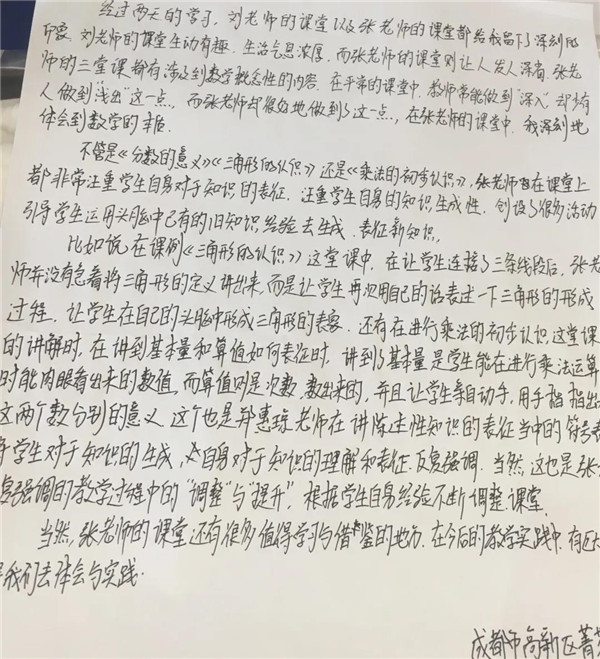 经过两天的学习，刘老师的课堂以及张老师的课堂都给我留下了深刻的
印象。刘老师的课堂生动有趣，生活气息浓厚。而张老师的课堂则让人发人深省，张老
师的三堂课都有涉及到数学概念性的内容。在平常的课堂中，教师常能做到"深入"，却少有
人做到"浅出"这一点，而张老师却很好地做到了这一点，在张老师的课堂中，我深刻地
体会到数学的
不管是《分数的意义》《三角形的认识》还是《乘法的初步认识》，张老师在课堂上
都非常注重学生自身对于知识的表征。注重学生自身的知识生成性，创设了很多活动
引导学生运用头脑中已有的旧知识、经验去生成、表征新知识。
比如说，在课例《三角形的认识》这堂课中，在让学生连接了三条线段后，张老
师并没有急着将三角形的定义讲出来，而是让学生再次用自己的话表述一下三角形的形成
过程，让学生在自己的头脑中形成三角形的表象。还有在进行乘法的初步认识这堂课
的讲解时，在讲到基本量和算值如何表征时，讲到了基本量是学生能在进行乘法运算
时能肉眼看出来的数值，而算值则是次数，数出来的，并且让学生亲自动手，用手指指出
这两个数分别的意义，这个也是 老师在讲陈述性知识的表征当中的符号表
学生对于知识的生成，自身对于知识的理解和表征，反复强调。当然，这也是张
复强调的教学过程中的"调整"与"提升"，根据学生自身经验不断调整课堂。
当然，张老师的课堂还有很多值得学习与借鉴的地方，在今后的教学实践中，有
是我们去体会与实践。
成都市高新区菁